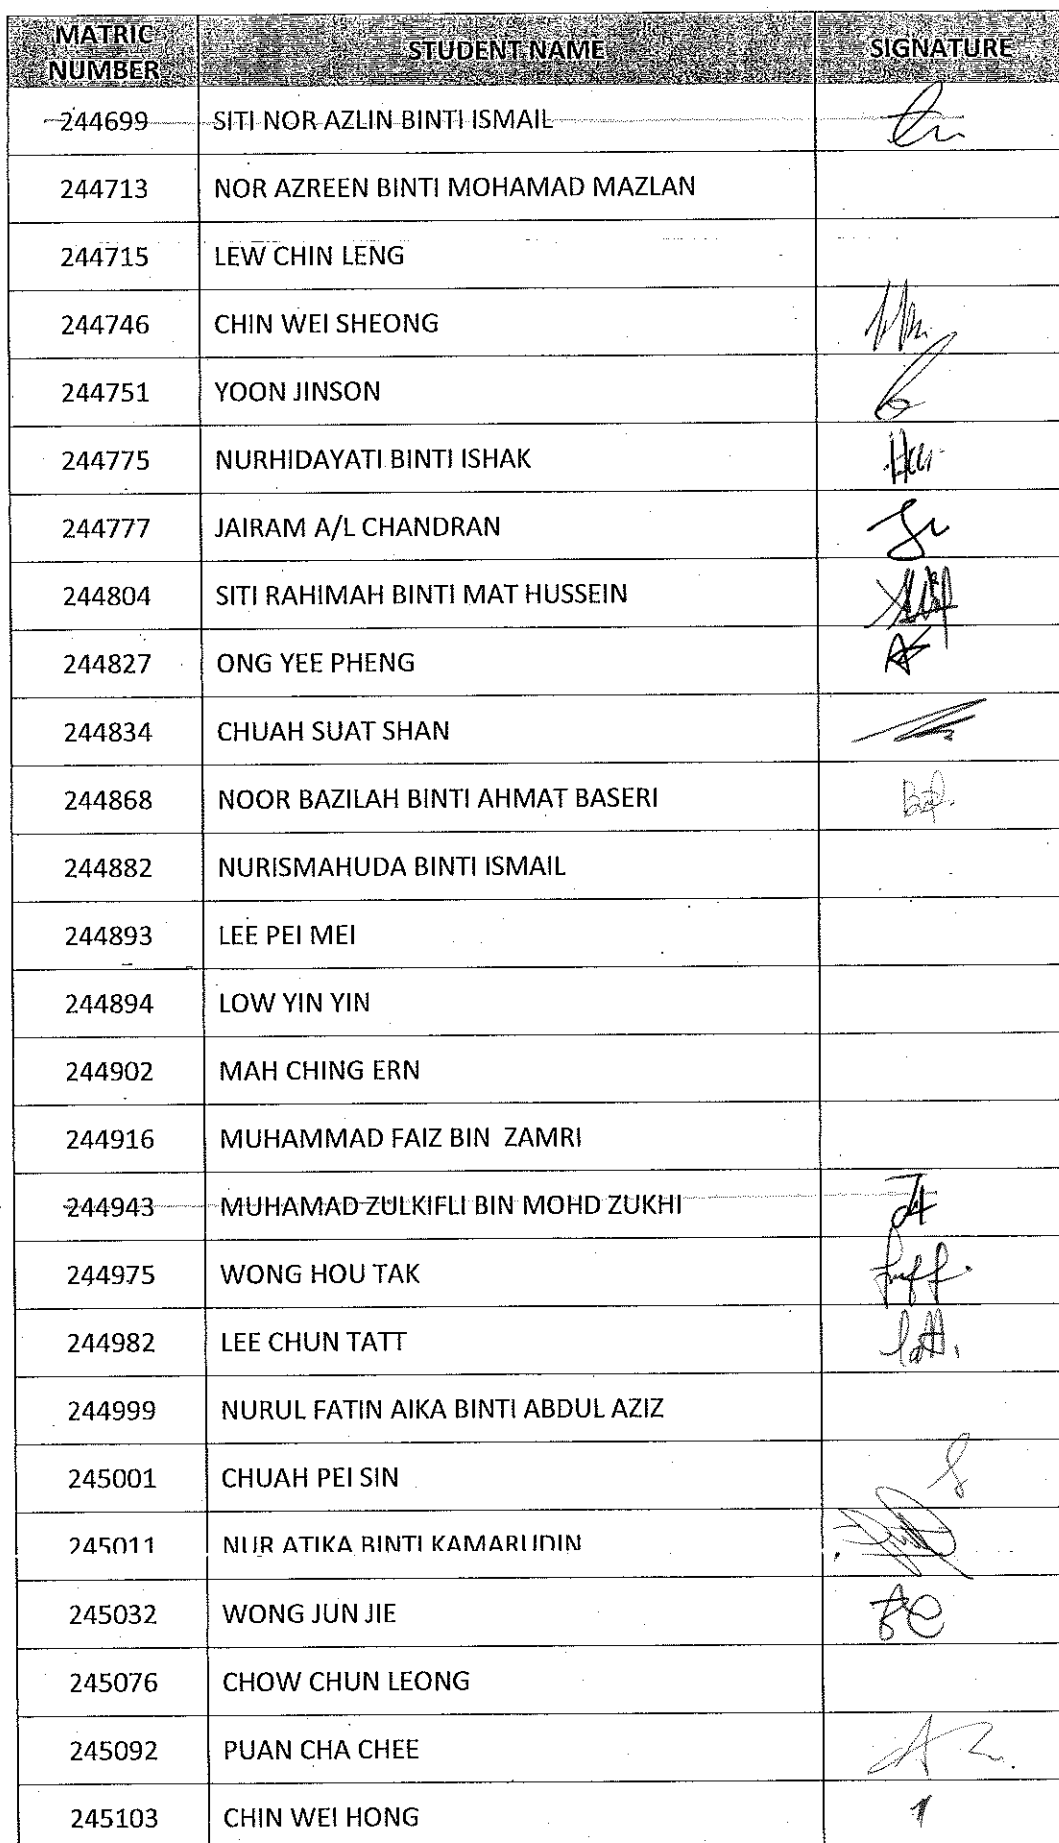 MATRIC NUMBER STUDENT NAME SIGNATURE
244699 SITI NOR AZLIN BINTI ISMAIL
244713 NOR AZREEN BINTI MOHAMAD MAZLAN
244715 LEW CHIN LENG
244746 CHIN WEI SHEONG
244751 YOON JINSON
244775 NURHIDAYATI BINTI ISHAK
244777 JAIRAM A/L CHANDRAN
244804 SITI RAHIMAH BINTI MAT HUSSEIN
244827 ONG YEE PHENG
244834 CHUAH SUAT SHAN
244868 NOOR BAZILAH BINTI AHMAT BASERI
244882 NURISMAHUDA BINTI ISMAIL
244893 LEE PEI MEI
244894 LOW YIN YIN
244902 MAH CHING ERN
244916 MUHAMMAD FAIZ BIN ZAMRI
244943 MUHAMAD ZULKIFLI BIN MOHD ZUKHI
244975 WONG HOU TAK
244982 LEE CHUN TATT
244999 NURUL FATIN AIKA BINTI ABDUL AZIZ
245001 CHUAH PEI SIN
245011 NUR ATIKA BINTI KAMARUDIN
245032 WONG JUN JIE
245076 CHOW CHUN LEONG
245092 PUAN CHA CHEE
245103 CHIN WEI HONG